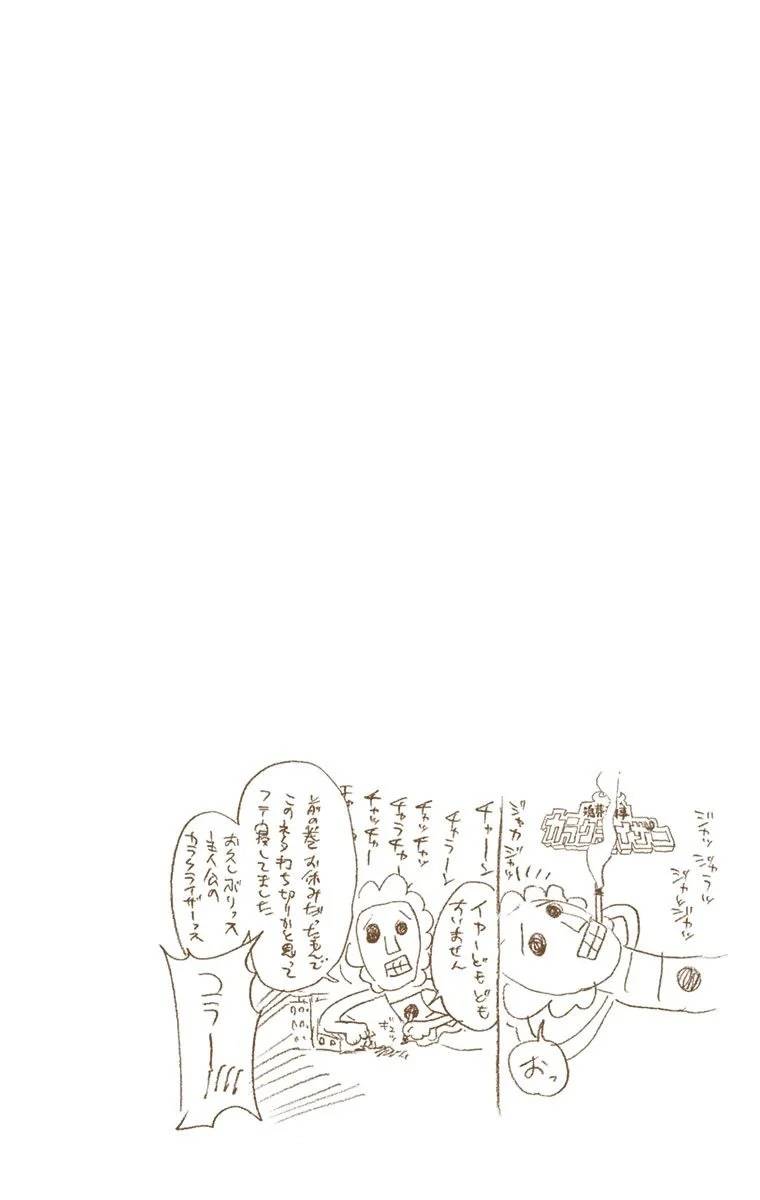 ジャッ
ジャラッ
ジャッ
ジャジャッ
カラクライザー
ジャカジャッ
おっ
チャーン
チャラーン
チャッチャッ
チャラチャー
チャッチャー
イヤーどもども
すいません
前の巻お休みだったもんで
このネタうち切りかと思って
フテ寝してました
お久しぶりッス
主人公の
カラクライザーッス
コラー!!!!